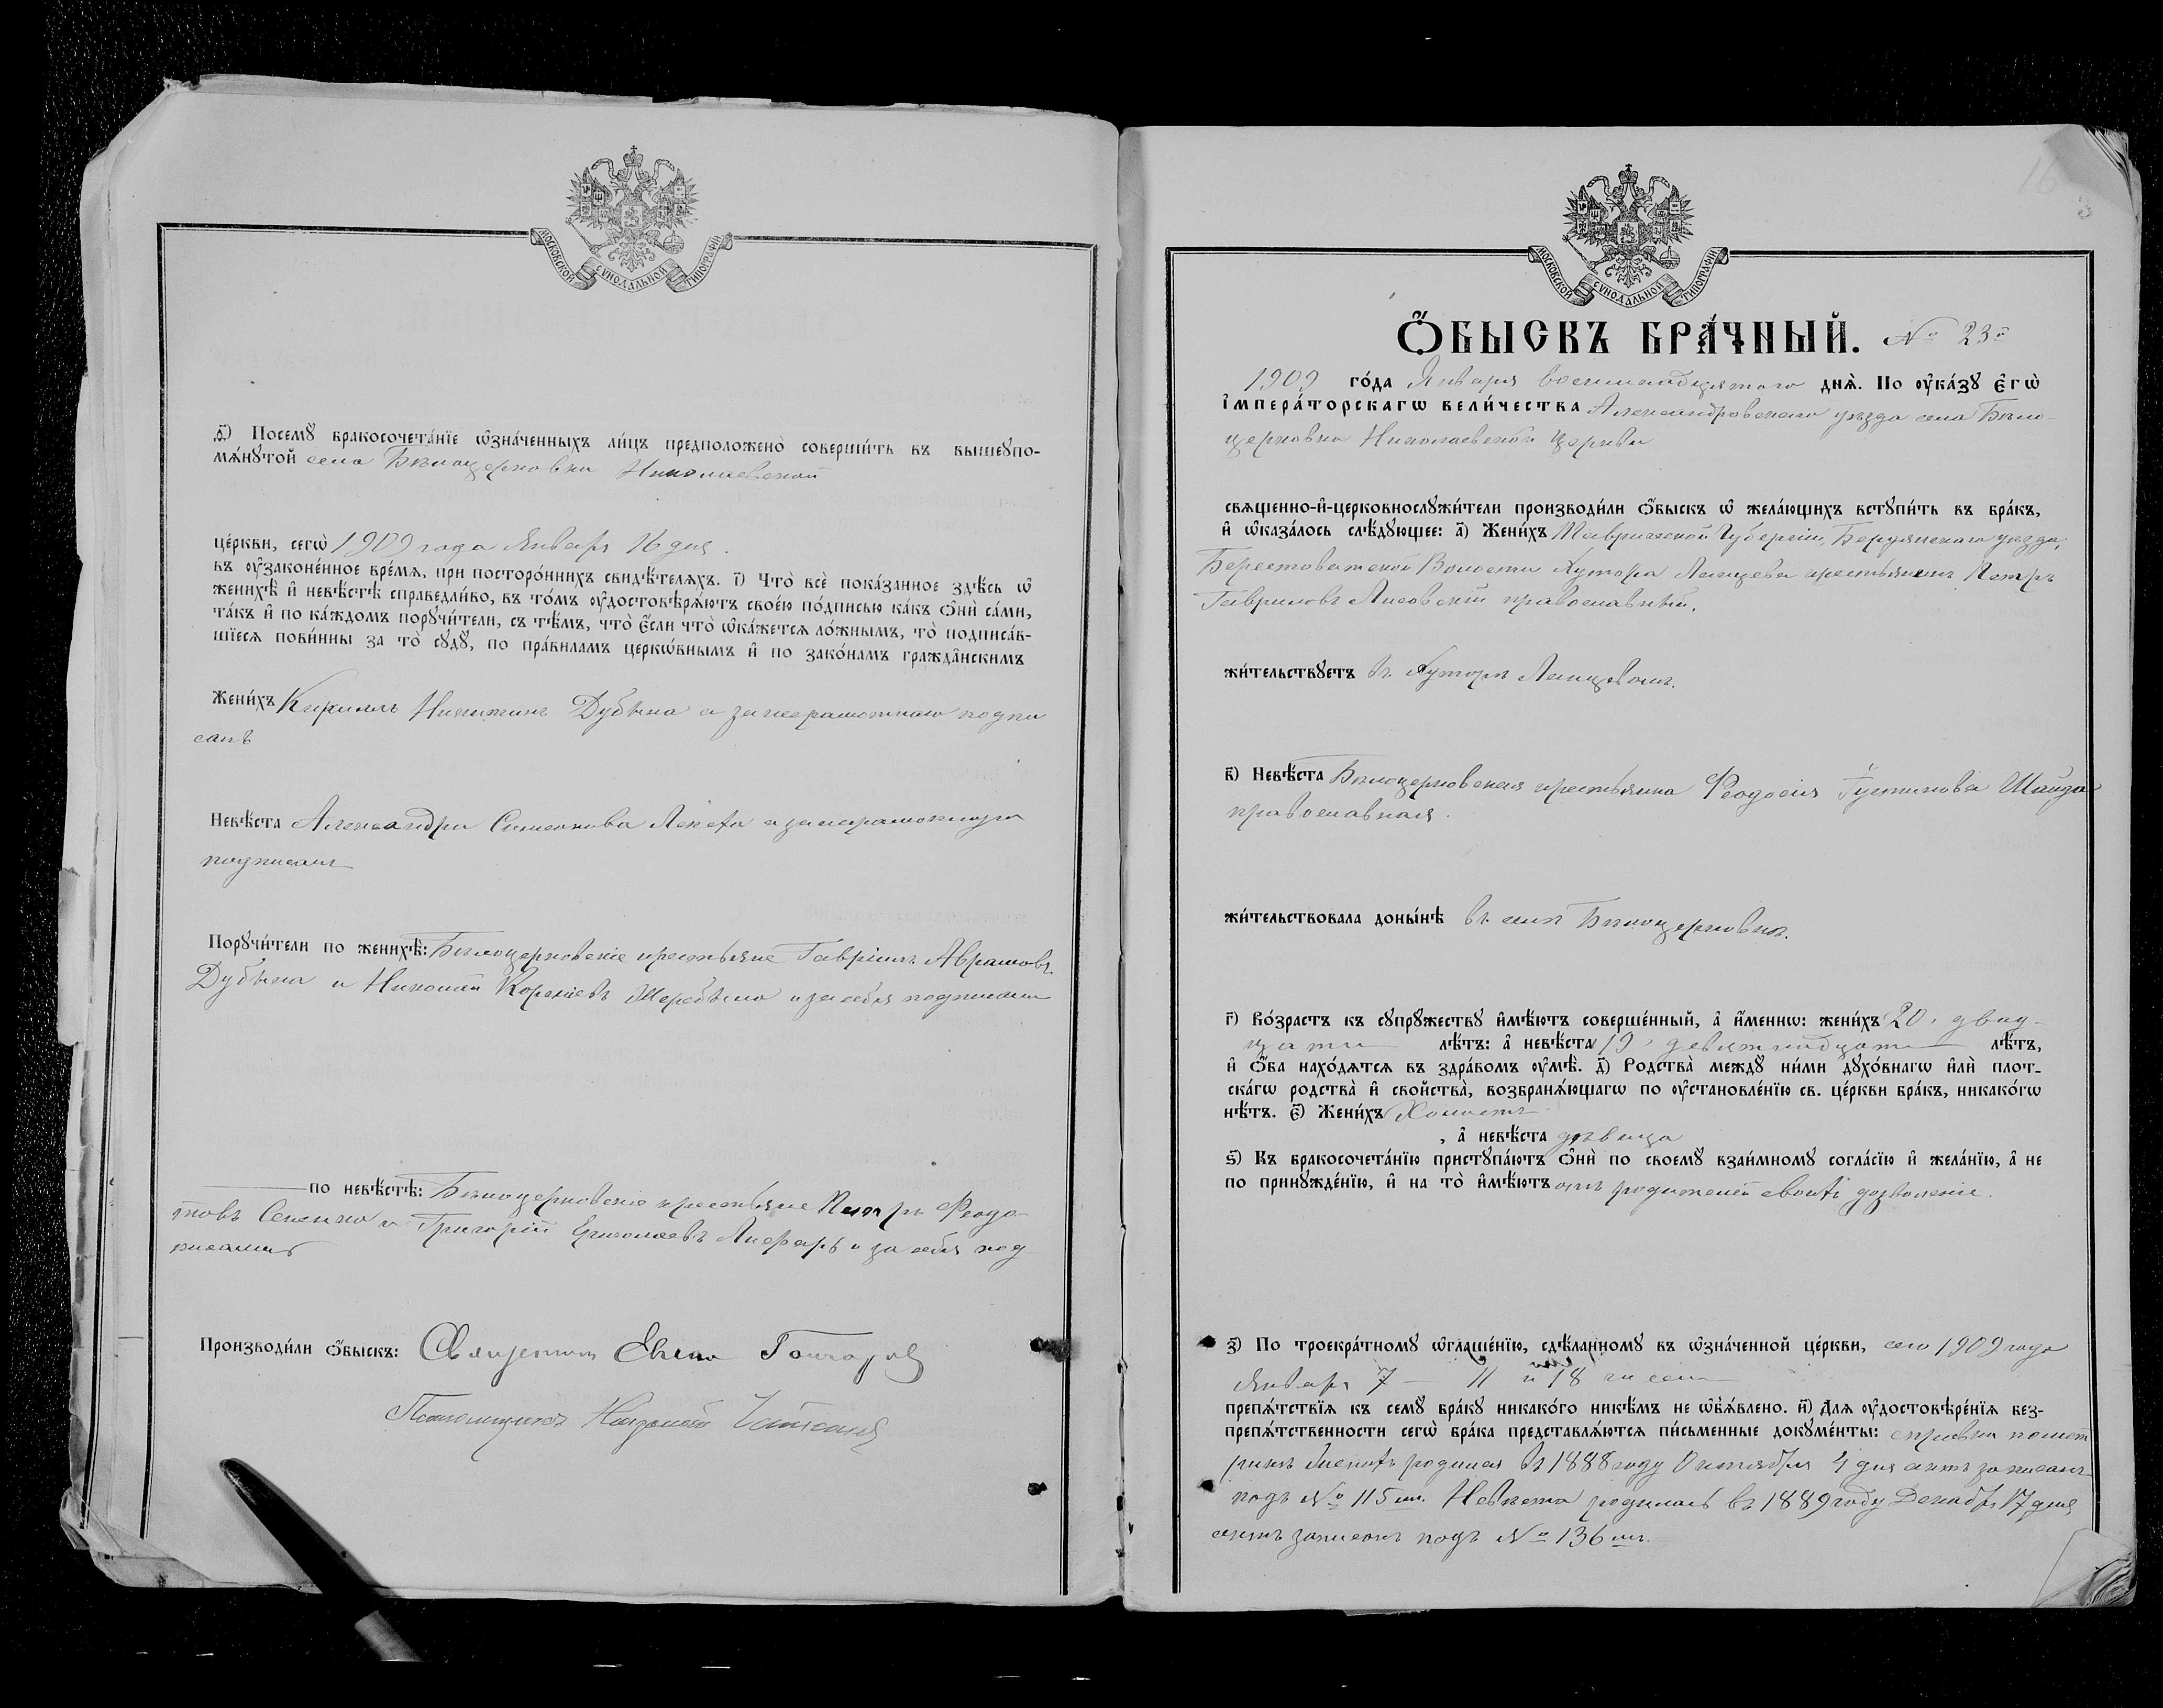 МОСКОВСКОЙ СѴНОДАЛЬНОЙ ТИПОГРАФІИ
ѳ҃) Посемꙋ бракосочета́нїе ѡ҆зна́ченныхъ ли́цъ предположено̀ соверши́ть въ вышеꙋпо-
мѧ́нꙋтой села Бѣлоцерковки Николаевской
це́ркви, сегѡ̀ 1909 года Января 16 дня.
въ ᲂу҆зако́ненное вре́мѧ, при посторо́ннихъ свидѣ́телѧхъ. і҃) Что̀ всѐ пока́занное здѣ́сь ѡ҆
женихѣ̀ и҆ невѣ́стѣ справедли́во, въ то́мъ ᲂу҆достовѣрѧ́ютъ свое́ю по́дписью ка́къ ѻ҆нѝ са́ми,
та́къ и҆ по ка́ждомъ порꙋчи́тели, съ тѣ́мъ, что̀ є҆́сли что̀ ѡ҆ка́жетсѧ ло́жнымъ, то̀ подписа́в-
шїесѧ пови́нны за то̀ сꙋдꙋ̀, по пра́виламъ церкѡ́внымъ и҆ по зако́намъ гражда̑нскимъ
Жени́хъ Кириллъ Никитинъ Дубына а за неграмотнаго подпи
салъ
Невѣ́ста Александра Симеонова а за неграмотную
подписалъ
Порꙋчи́тели по женихѣ̀: Бѣлоцерковскіе крестьяне Гавріилъ Аврамовъ
Дубына и Николай Жеребыло и за себя подписали
по невѣ́стѣ: Бѣлоцерковскіе крестьяне Петръ Феодо-
товъ Сененко и Григорій Лисфарь и за себя под
писались
Производи́ли ѻ҆́быскъ: Священникъ Гончаровъ
Псаломщикъ
МОСКОВСКОЙ СѴНОДАЛЬНОЙ ТИПОГРАФІИ
16
3
Ѻ҆́БЫСКЪ БРА́ЧНЫЙ. № 23й
1909 го́да Января восемнадцятаго днѧ̀. По ᲂу҆ка́зꙋ є҆гѡ̀
і҆мпера́торскагѡ вели́чества Александровскаго уѣзда села Бѣло-
церковки Николаевской Церкви
свѧщенно-и҆-церковнослꙋжи́тели производи́ли ѻ҆́быскъ ѡ҆ жела́ющихъ встꙋпи́ть въ бра́къ,
и҆ ѡ҆каза́лось слѣ́дꙋющее: а҃) Жени́хъ Таврической Губерніи, Бердянскаго уѣзда,
Берестоватской Волости Хутора Ланцева крестьянинъ Петръ
Гавриловъ Лисовскій православный.
жи́тельствꙋетъ въ Хуторѣ Ланцевомъ.
в҃) Невѣ́ста Бѣлоцерковская крестьянка Феодосія Густинова Шайда
православная.
жи́тельствовала доны́нѣ въ селѣ Бѣлоцерковкѣ.
г҃) Во́зрастъ къ сꙋпрꙋ́жествꙋ и҆мѣ́ютъ соверше́нный, а҆ и҆́меннѡ: жени́хъ 20, двад-
цати лѣ́тъ: а҆ невѣ́ста 19, девятнадцати лѣ́тъ,
и҆ ѻ҆́ба нахо́дѧтсѧ въ здра́вомъ ᲂу҆мѣ̀. д҃) Родства̀ междꙋ̀ ни́ми дꙋхо́внагѡ и҆лѝ плот-
ска́гѡ родства̀ и҆ сво́йства̀, возбранѧ́ющагѡ по ᲂу҆становле́нїю св. це́ркви бра́къ, никако́гѡ
нѣ́тъ. є҃) Жени́хъ Холостъ
, а҆ невѣ́ста дѣвица
ѕ҃) Къ бракосочета́нїю пристꙋпа́ютъ ѻ҆нѝ по своемꙋ̀ взаи́мномꙋ согла́сїю и҆ жела́нїю, а҆ не
по принꙋжде́нїю, и҆ на то̀ и҆мѣ́ютъ отъ родителей своихъ дозволеніе.
з҃) По троекра́тномꙋ ѡ҆глаше́нїю, сдѣ́ланномꙋ въ ѡ҆зна́ченной це́ркви, сего 1909 года
Января 7 — 11 и 18 числа
препѧ́тствїѧ къ семꙋ̀ бра́кꙋ никако́гѡ никѣ́мъ не ѡ҆б̾ѧ́влено. и҃) Длѧ ᲂу҆достовѣре́нїѧ без-
препѧ́тственности сегѡ̀ бра́ка представлѧ́ютсѧ пи́сьменные докꙋме́нты: справка помет
рикѣ Женихъ родился въ 1888 году Октября 4 дня актъ записанъ
подъ № 115 мъ. Невѣста родилась въ 1889 году Декабря 17 дня
актъ записанъ подъ № 136 мъ.